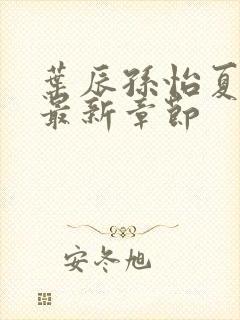 葉辰孫怡夏
最新章節
安冬旭